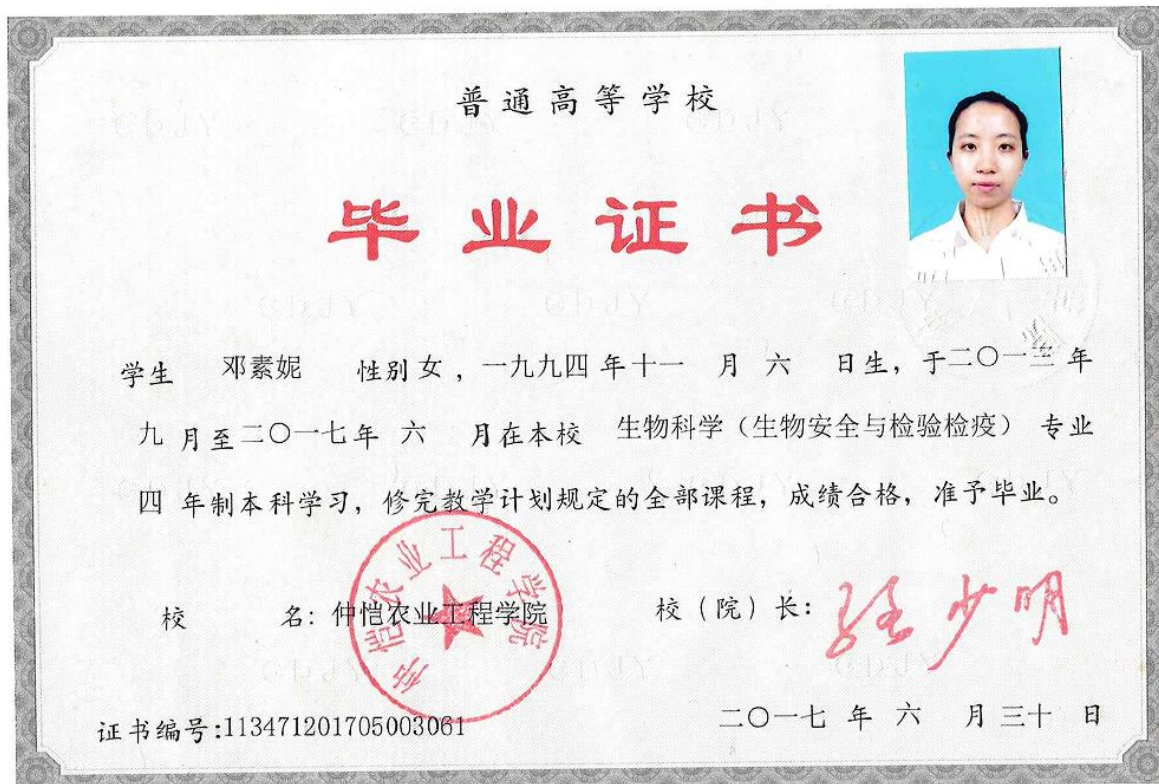 普通高等学校
毕业证书
学生 邓素妮 性别 女 , 一九九四 年 十一 月 六 日生, 于 二〇一三 年
九 月至 二〇一七 年 六 月在本校 生物科学（生物安全与检验检疫） 专业
四 年制本科学习, 修完教学计划规定的全部课程, 成绩合格, 准予毕业。
仲恺农业工程学院
校 名: 仲恺农业工程学院 校（院）长:
证书编号:113471201705003061 二〇一七 年 六 月 三十 日